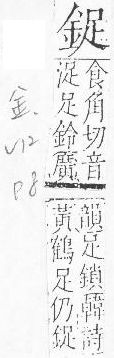 鋜
食角切音
浞足鈴廣
韻足鎖韓詩
黃鶴足仍鋜
金
V12
P8